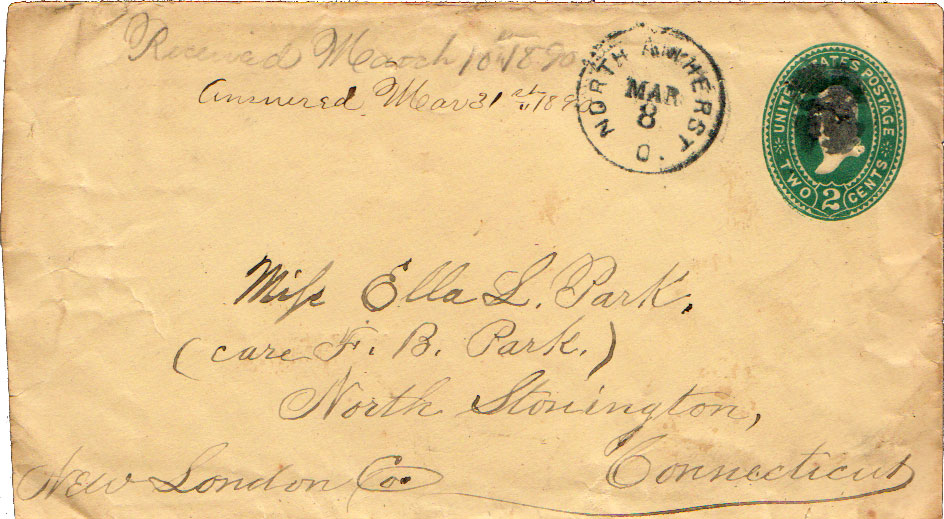 Received March 10th 1890
Answered Mar 31st 189
NORTH AMHERST. O.
MAR
8
UNITED STATES POSTAGE
TWO 2 CENTS
Miss Ella L. Park,
(care F. B. Park.)
North Stonington,
New London Co. Connecticut